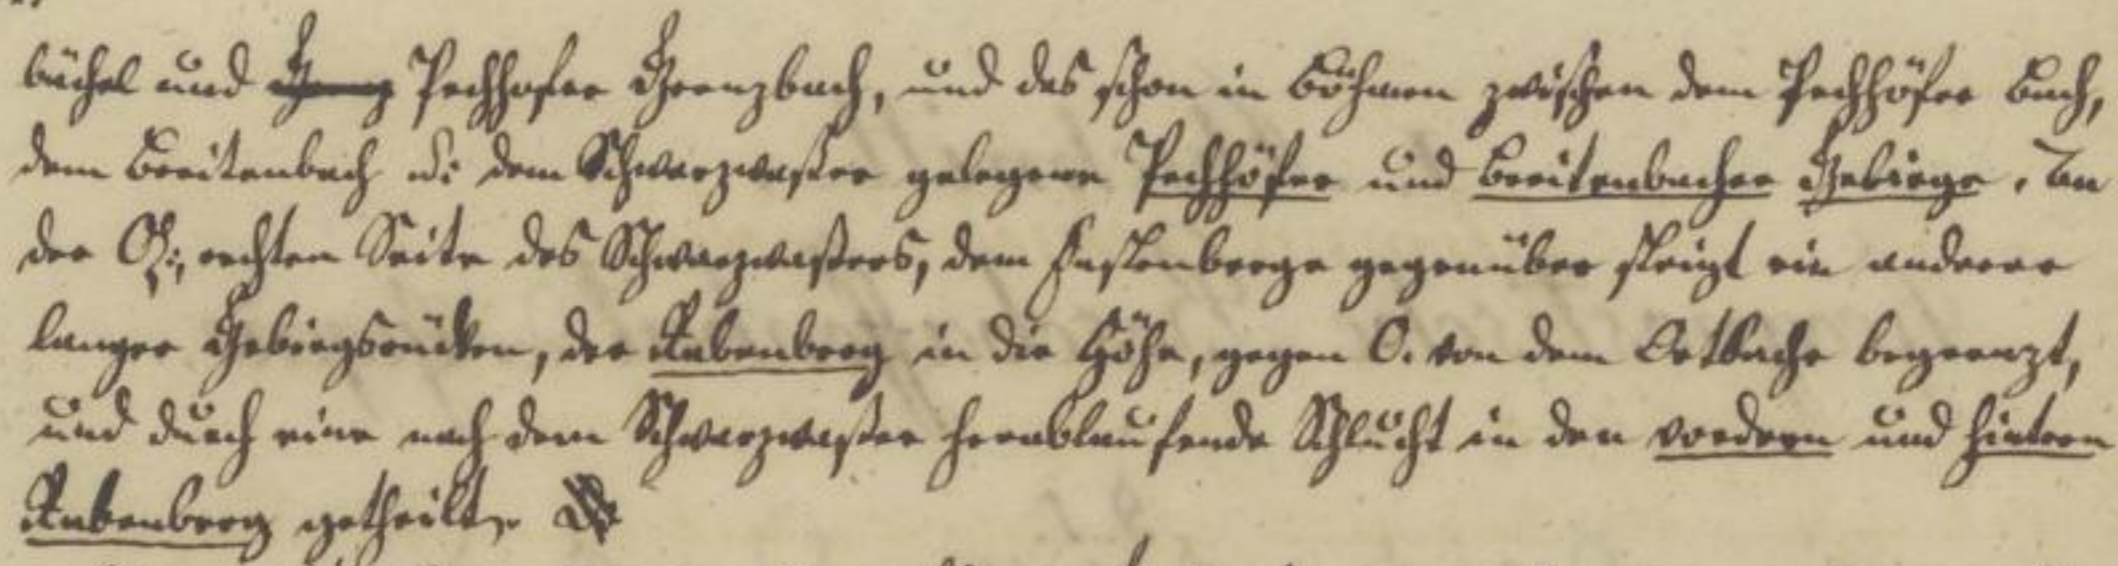 bächel und Pechhofer Grenzbach, und das schon in Böhmen zwischen dem Pechhöfer Bach,
dem Breitenbach u: dem Schwarzwaßer gelegene Pechhöfer und Breitenbacher Gebirge. An
der O, rechten Seite des Schwarzwaßers, dem Fastenberge gegenüber steigt ein anderer
langer Gebirgsrücken, der Rabenberg in die Höhe, gegen O. von dem Ortbache begrenzt,
und durch eine nach dem Schwarzwaßer herablaufende Schlucht in den vordern und hintern
Rabenberg getheilt.